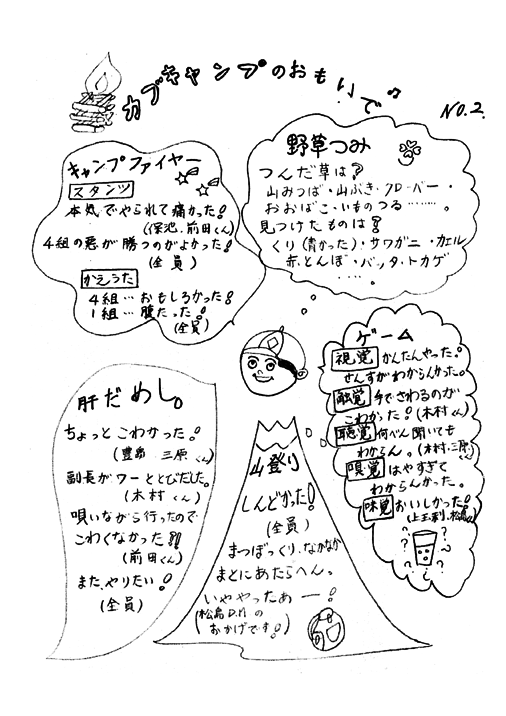 カブキャンプのおもいで
NO.2.
キャンプファイヤー
スタンツ
本気でやられて痛かった!
(保池、前田くん)
4組の悪が勝つのがよかった!
(全員)
かえうた
4組…おもしろかった!
1組…腹たった!
(全員)
野草つみ
つんだ草は?
山みつば・山ぶき・クローバー・
おおばこ・いものつる……。
見つけたものは?
くり(青かった)・サワガニ・カエル
赤とんぼ・バッタ・トカゲ
....
ゲーム
視覚 かんたんやった!
せんすがわからんかった。
触覚 手でさわるのが
こわかった!(木村くん)
聴覚 何べん聞いても
わからん。(木村、三原くん)
嗅覚 はやすぎて
わからんかった。
味覚 おいしかった!
肝だめし。
ちょっとこわかった!
(豊島 三原くん)
副長がワーととびだした。
(木村くん)
唄いながら行ったので
こわくなかった!!
(前田くん)
また、やりたい!
(全員)
山登り
しんどかった!
(全員)
まつぼっくり、なかなか
まとにあたらへん。
いややったぁー!
(松島D.Mの
おかげです!)